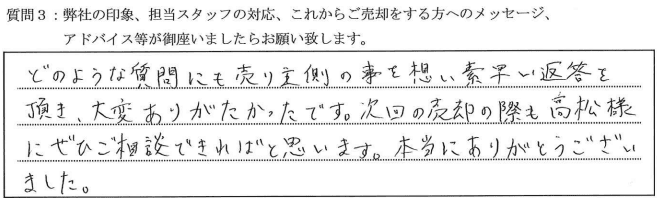 質問３：弊社の印象、担当スタッフの対応、これからご売却をする方へのメッセージ、
アドバイス等が御座いましたらお願い致します。
どのような質問にも売り主側の事を想い素早い返答を
頂き、大変ありがたかったです。次回の売却の際も高松様
にぜひご相談できればと思います。本当にありがとうござい
ました。